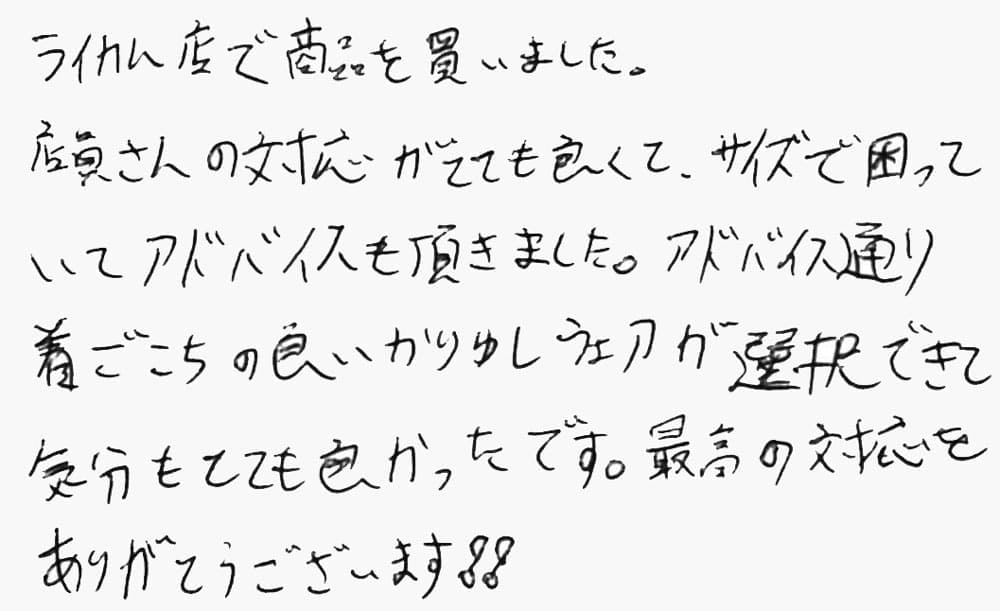 ライカム店で商品を買いました。
店員さんの対応がとても良くて、サイズで困って
いてアドバイスも頂きました。アドバイス通り
着ごこちの良いかりゆしウェアが選択できて
気分もとても良かったです。最高の対応を
ありがとうございます!!